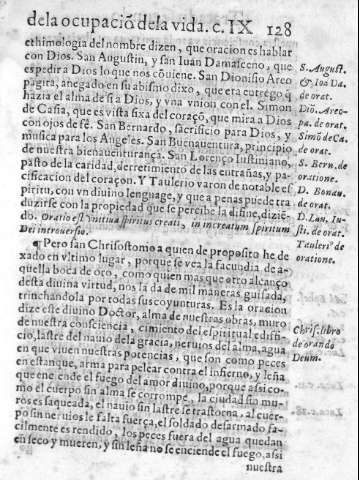 de la ocupaciõ de la vida. c. IX 128
ethimologia del nombre dizen, que oracion es hablar
con Dios. San Augustin, y san Iuan Damasceno, que
es pedir a Dios lo que nos cõuiene. San Dionisio Areo
pagita, anegado en su abismo dixo, que era
hazia el alma de si a Dios, y vna vnion con el. Simon
de Casia, que es vista fixa del coraçõ, que mira a Dios
con ojos de fê. San Bernardo, sacrificio para Dios, y
musica para los Angeles. San Buenauentura, principio
de nuestra bienauenturança. San Lorenço Iustiniano,
pasto de la caridad, derretimiento de las entrañas, y pa-
cificacion del coraçon. Y Taulerio varon de notable es
piritu, con vn diuino lenguage, y que a penas puede tra
duzirse con la propiedad que se percibe la difine, dizie-
do. Oratio est initiua spiritus creati, in increatum spiritum
Dei introuersio.
¶ Pero san Chrisostomo a quien de proposito he de
xado en vltimo lugar, porque se vea la facundia de a-
quella boca de oro, como quien mas que otro alcanço
desta diuina virtud, nos la da de mil maneras guisada,
trinchandola por todas sus coyunturas. Es la oracion
dize este diuino Doctor, alma de nuestras obras, muro
de nuestra consciencia, cimiento del espiritual edifi-
cio, lastre del nauio de la gracia, neruios del alma, agua
en que viuen nuestras potencias, que son como peces
en estanque, arma para pelear contra el infierno, y leña
que enciende el fuego del amor diuino, porque assi co-
mo el cuerpo sin alma se corrompe, la ciudad sin mu-
ros es saqueada, el nauio sin lastre se trastorna, al cuer-
po sin neruios le falta fuerça, el soldado desarmado fa-
cilmente es rendido, los peces fuera del agua quedan
en seco y mueren, y sin leña no se enciende el fuego, assi
nuestra
S. August.
& Ioa Da.
de orat.
Dio. Areo-
pa. de orat.
Simõ de Ca.
de orat.
S. Bern. de
oratione.
D. Bonau.
de orat.
D. Lau. Iu-
sti. de orat.
Tauleri⁹ de
oratione.
Chris. libro
de orando
Deum.